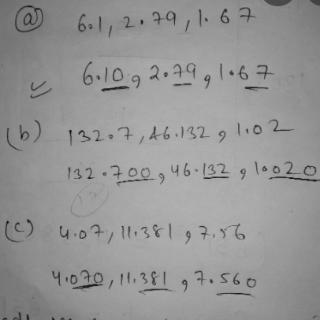 (a) 6.1, 2.79, 1.67
6.10, 2.79, 1.67
(b) 132.7, 46.132, 1.02
132.700, 46.132, 1.020
(c) 4.07, 11.381, 7.56
4.070, 11.381, 7.560